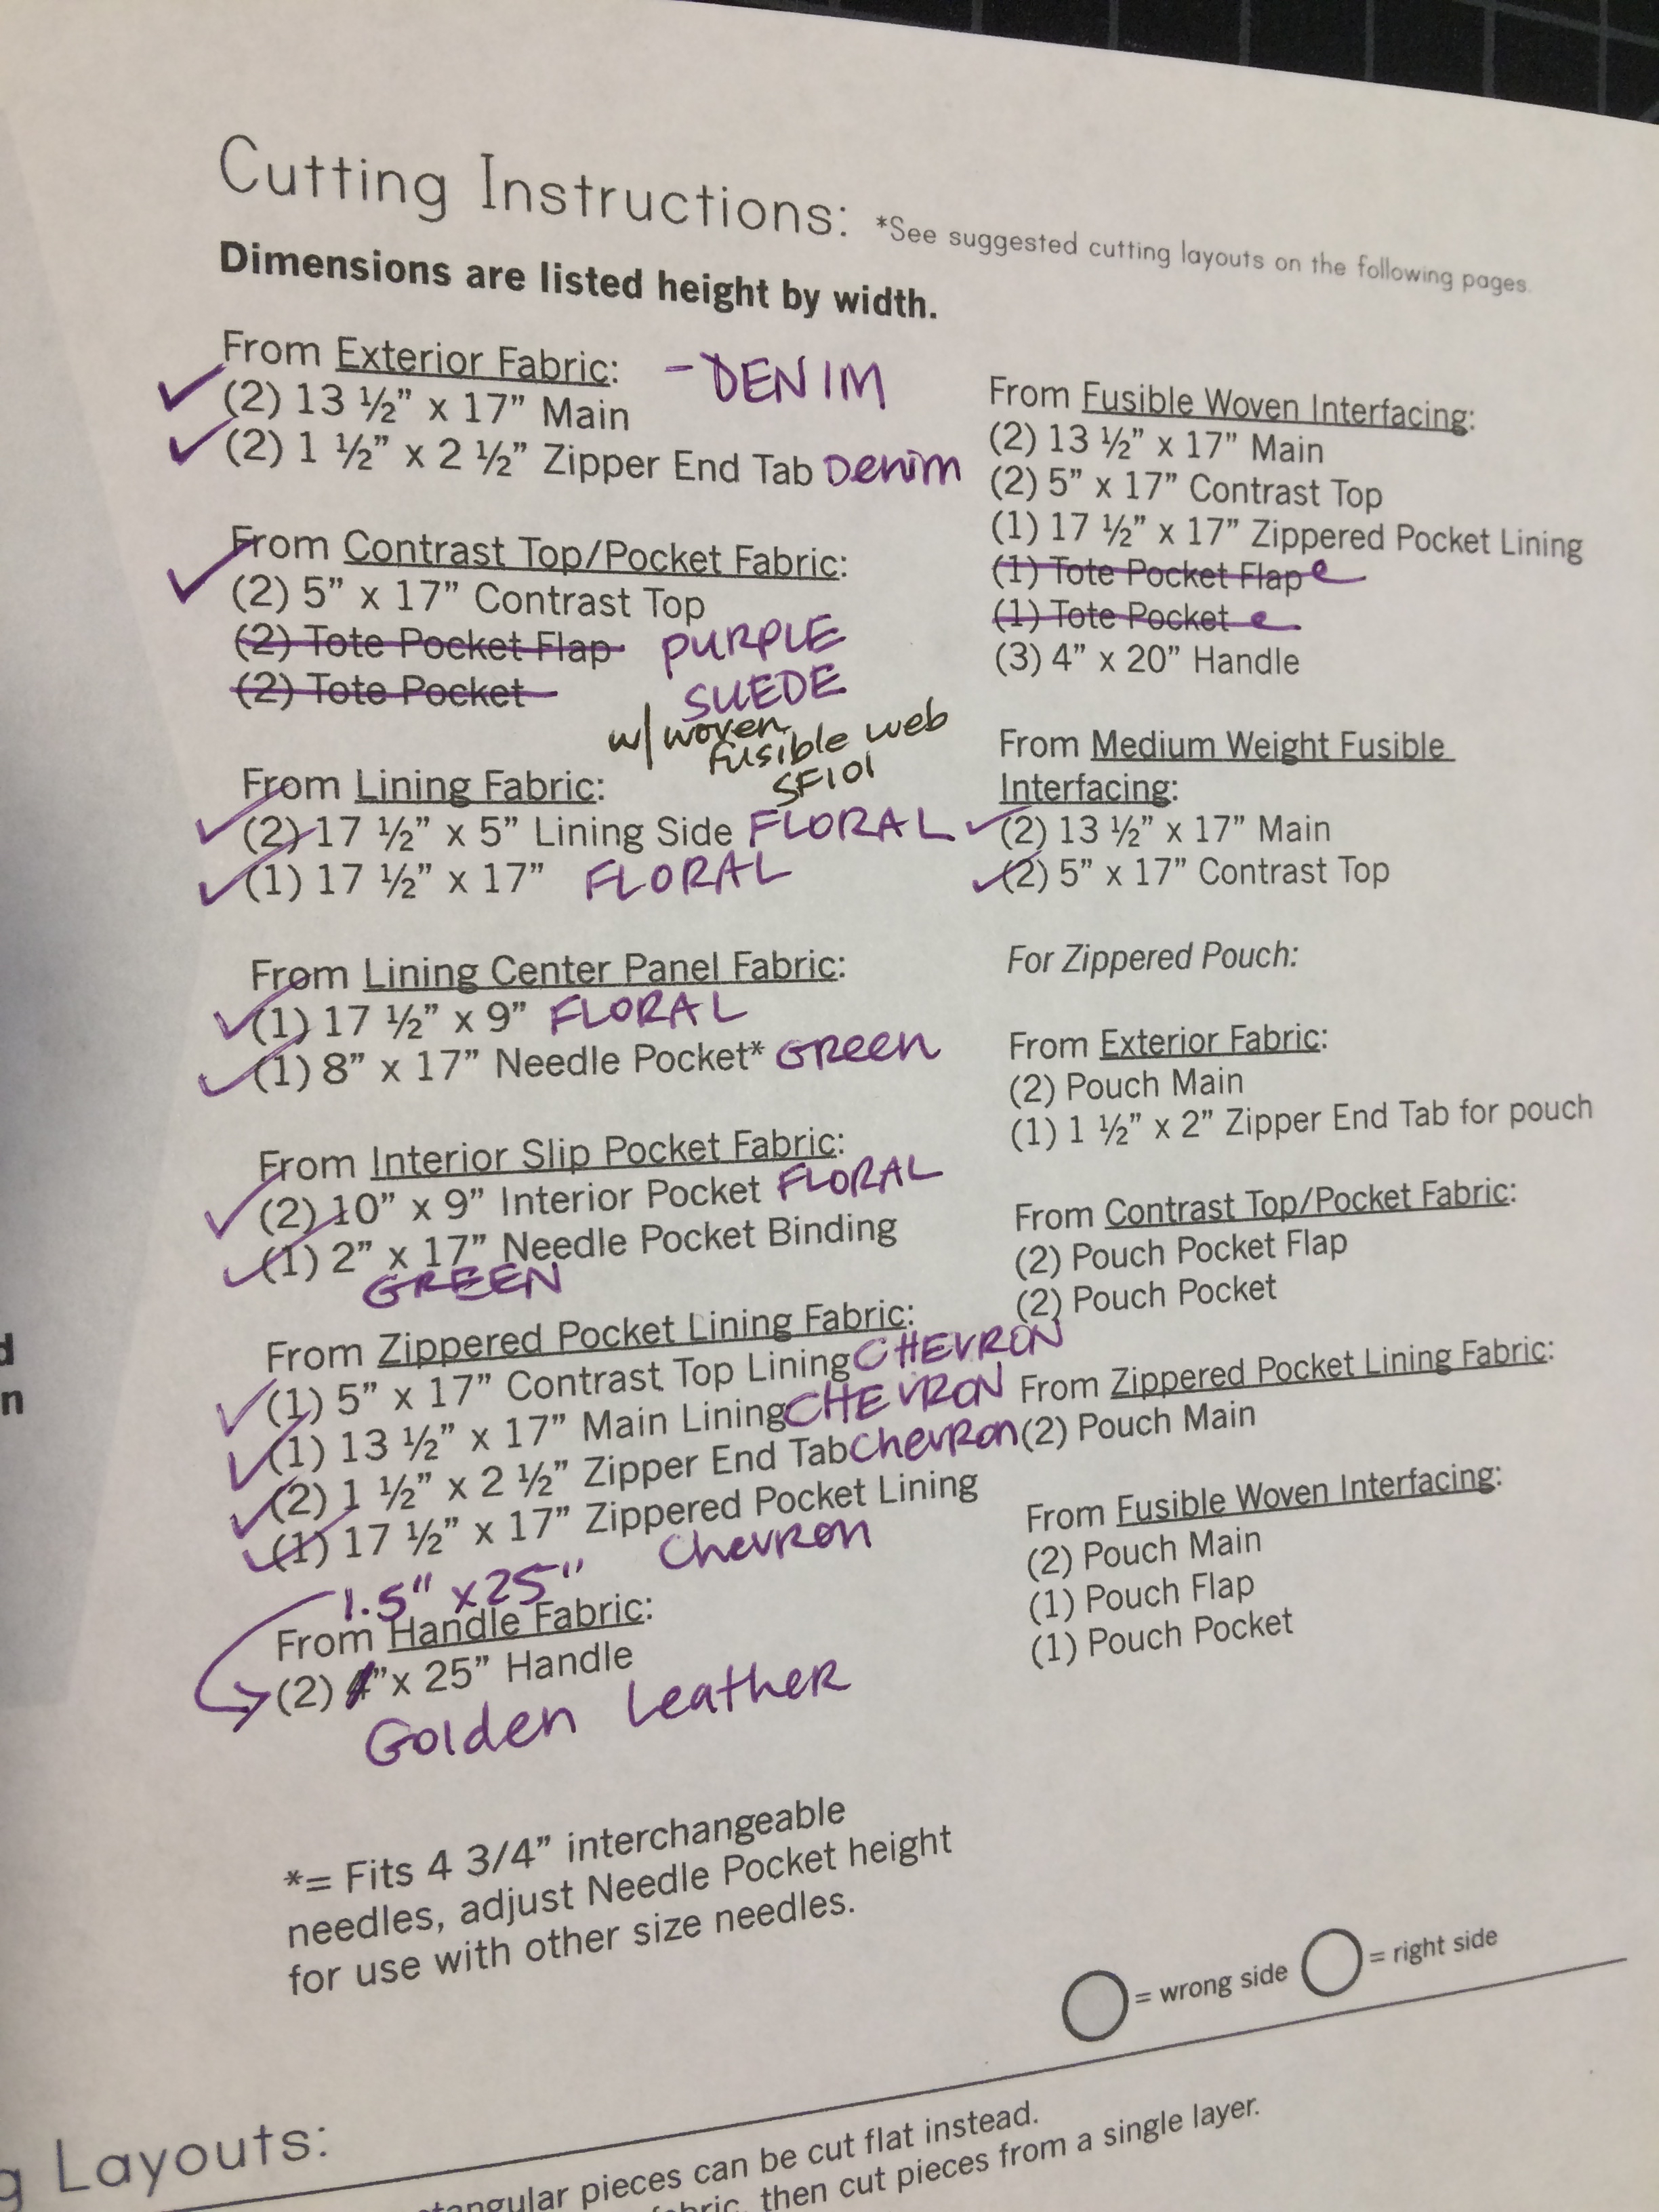 Cutting Instructions: *See suggested cutting layouts on the following pages.
Dimensions are listed height by width.
From Exterior Fabric: - DENIM
✓ (2) 13 ½” x 17” Main
✓ (2) 1 ½” x 2 ½” Zipper End Tab Denim
From Contrast Top/Pocket Fabric:
✓ (2) 5” x 17” Contrast Top
(2) Tote Pocket Flap PURPLE
(2) Tote Pocket SUEDE
w/ woven
fusible web
SF101
From Lining Fabric:
✓ (2) 17 ½” x 5” Lining Side FLORAL
✓ (1) 17 ½” x 17” FLORAL
From Lining Center Panel Fabric:
✓ (1) 17 ½” x 9” FLORAL
✓ (1) 8” x 17” Needle Pocket* GREEN
From Interior Slip Pocket Fabric:
✓ (2) 10” x 9” Interior Pocket FLORAL
✓ (1) 2” x 17” Needle Pocket Binding
GREEN
From Zippered Pocket Lining Fabric:
✓ (1) 5” x 17” Contrast Top Lining CHEVRON
✓ (1) 13 ½” x 17” Main Lining CHEVRON
✓ (2) 1 ½” x 2 ½” Zipper End Tab CHEVRON
✓ (1) 17 ½” x 17” Zippered Pocket Lining
Chevron
1.5" x 25"
From Handle Fabric:
(2) 4”x 25” Handle
Golden Leather
*= Fits 4 3/4” interchangeable
needles, adjust Needle Pocket height
for use with other size needles.
From Fusible Woven Interfacing:
(2) 13 ½” x 17” Main
(2) 5” x 17” Contrast Top
(1) 17 ½” x 17” Zippered Pocket Lining
(1) Tote Pocket Flap
(1) Tote Pocket
(3) 4” x 20” Handle
From Medium Weight Fusible
Interfacing:
✓ (2) 13 ½” x 17” Main
✓ (2) 5” x 17” Contrast Top
For Zippered Pouch:
From Exterior Fabric:
(2) Pouch Main
(1) 1 ½” x 2” Zipper End Tab for pouch
From Contrast Top/Pocket Fabric:
(2) Pouch Pocket Flap
(2) Pouch Pocket
From Zippered Pocket Lining Fabric:
(2) Pouch Main
From Fusible Woven Interfacing:
(2) Pouch Main
(1) Pouch Flap
(1) Pouch Pocket
= wrong side = right side
Layouts:
pieces can be cut flat instead.
then cut pieces from a single layer.